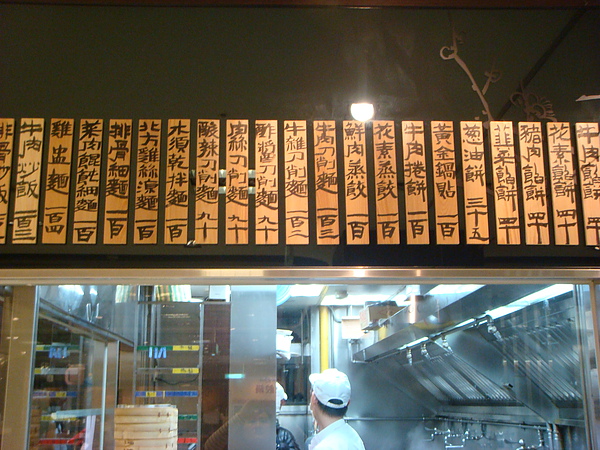 花素餡餅 四十
豬肉餡餅 四十
韭菜餡餅 四十
葱油餅 三十五
黃金鍋貼 一百
牛肉捲餅 一百
花素蒸餃 一百
鮮肉蒸餃 一百
牛肉刀削麵 百三
牛雜刀削麵 百二
酢醬刀削麵 九十
肉絲刀削麵 九十
酸辣刀削麵 九十
乾拌麵 一百
北方雞絲涼麵 一百
排骨細麵 一百
菜肉餛飩細麵 一百
雞盅麵 百四
牛肉炒飯 百三
排骨炒飯